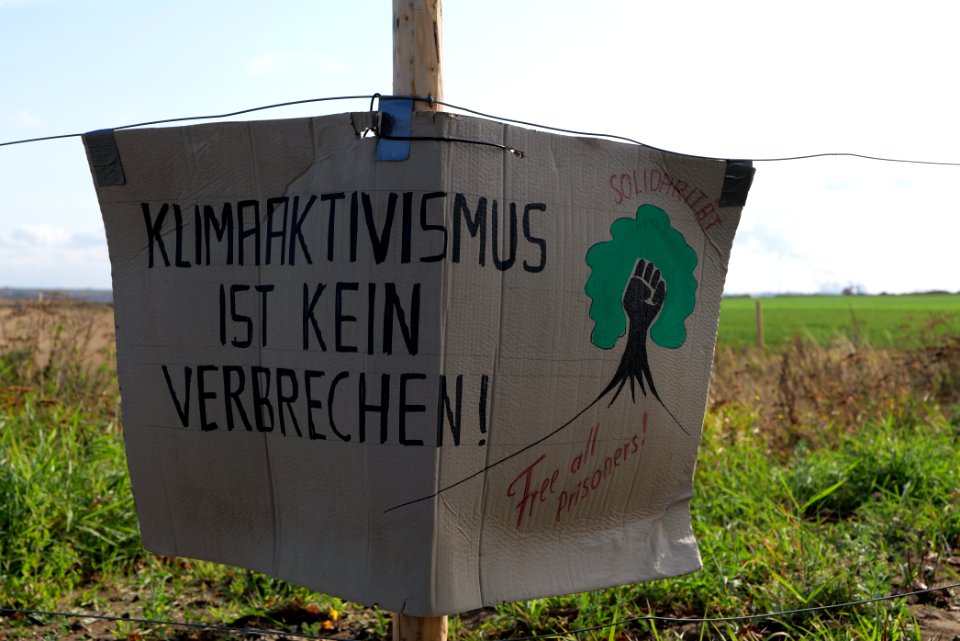 KLIMAAKTIVISMUS
IST KEIN
VERBRECHEN!
SOLIDARITÄT
Free all
prisoners!